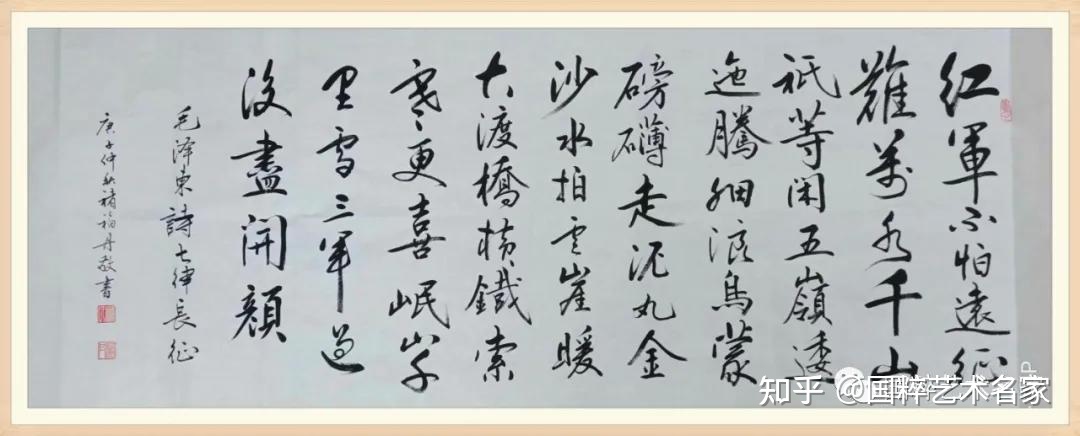 红軍不怕遠征
難萬水千山
祇等闲五嶺逶
迤騰细浪烏蒙
磅礴走泥丸金
沙水拍云崖暖
大渡橋横鐵索
寒更喜岷山千
里雪三軍过
後盡開顔
毛泽東詩七律長征
庚子仲秋褚福丹敬書
知乎 @国粹艺术名家